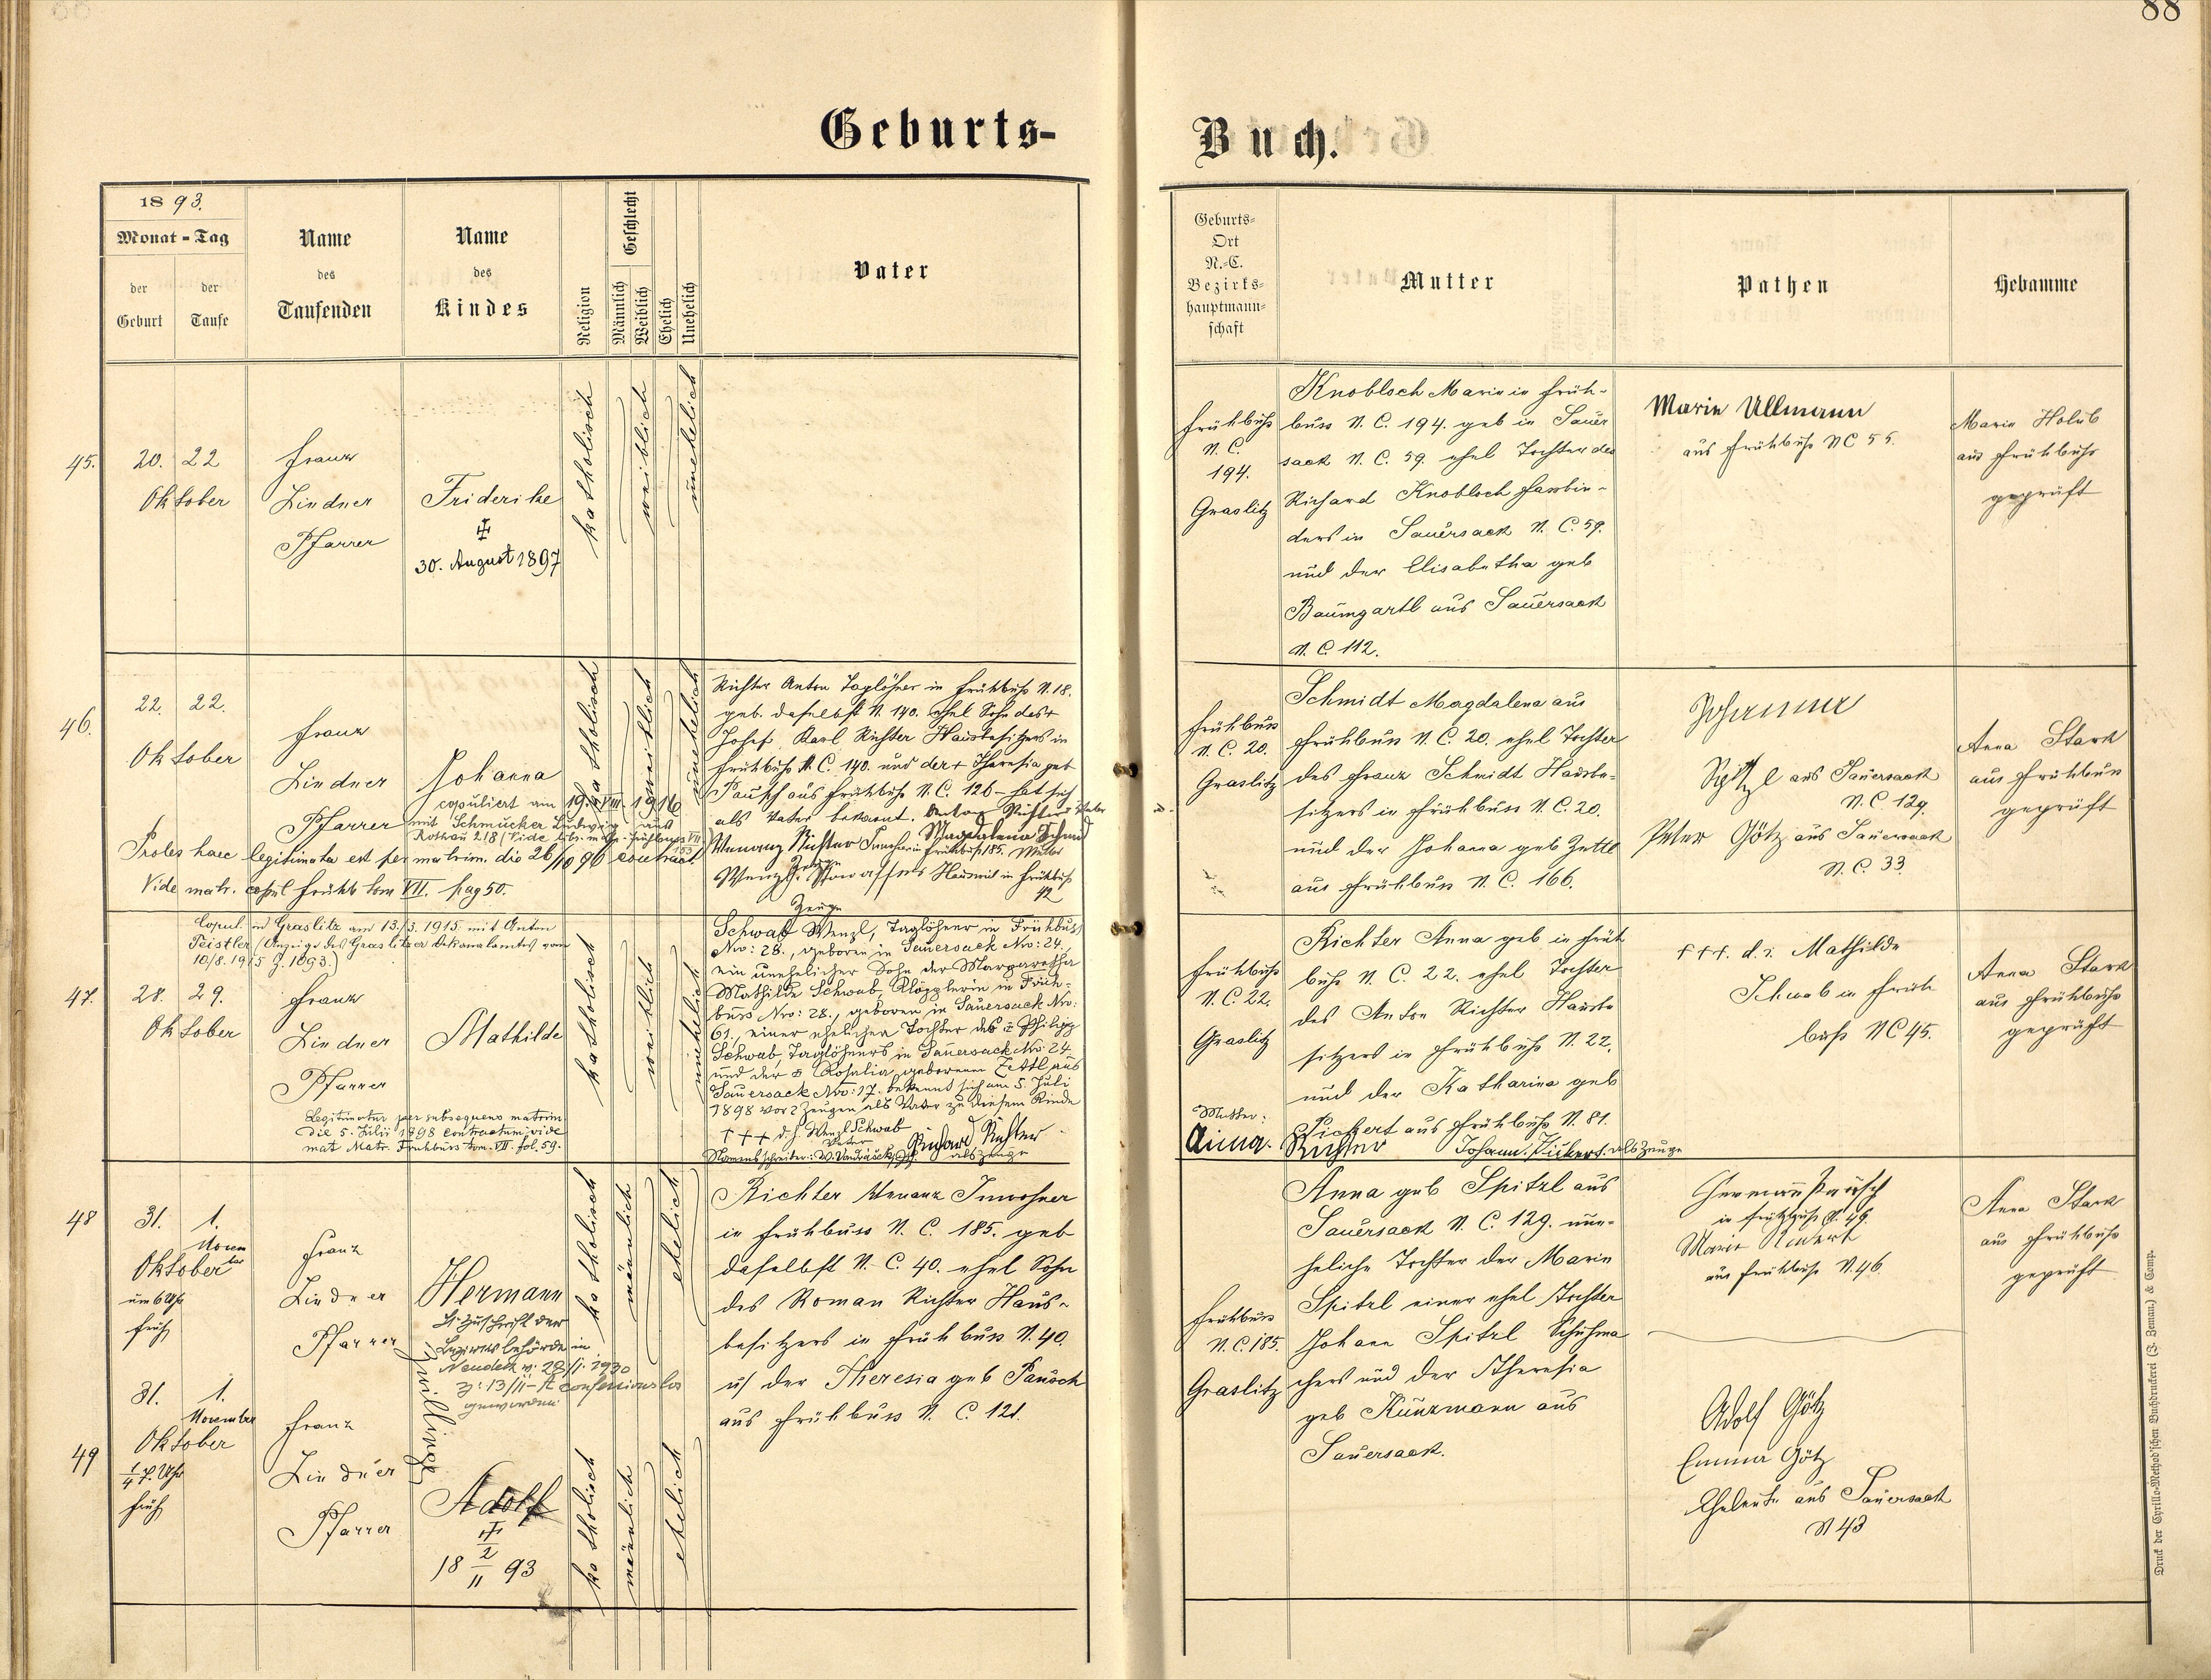 88
Geburts-
Buch.
1893.
Monat - Tag
der
Geburt
der
Taufe
Name
des
Taufenden
Name
des
Kindes
Religion
Geschlecht
Männlich
Weiblich
Ehelich
Unehelich
Vater
Geburts-
Ort
N.-C.
Bezirks-
hauptmann-
schaft
Mutter
Pathen
Hebamme
45.
20. 22
Oktober
Franz
Lindner
Pfarrer
Friderike
30. August 1897
katholisch
weiblich
unehelich
Frühbuß
N. C.
194.
Graslitz
Knobloch Marie in Früh-
buss N. C. 194. geb in Sauer
sack N. C. 59. ehel Tochter des
Richard Knobloch Fassbin-
ders in Sauersack N. C. 59.
und der Elisabetha geb
Baumgartl aus Sauersack
N. C. 112.
Marie Ullmann
aus Frühbuß NC 55.
Marie Holub
aus Frühbuß
geprüft
46.
22. 22.
Oktober
Franz
Lindner
Pfarrer
Johanna
copuliert am 19. VIII 1916
mit Schmucker Ludwig aus
Rothau 218
Proles haec legitimata est per matrim. die 26/10 96 contract
Vide matr. copul Frühb tom VII. pag 50.
katholisch
weiblich
unehelich
Richter Anton Taglöhner in Frühbuß N. 18.
geb. daselbst N. 140. ehel Sohn des +
Josef Karl Richter Hausbesitzers in
Frühbuß N. C. 140. und der + Theresia geb
Pausch aus Frühbuß N. C. 126 - hat sich
als Vater bekannt. Anton Richter Vater
Magdalena Schmid
Mutter
Wenanz Richter
in Frühbuß 185.
Zeuge
in Frühbuß
42
Zeuge
Frühbuss
N. C. 20.
Graslitz
Schmidt Magdalena aus
Frühbuss N. C. 20. ehel Tochter
des Franz Schmidt Hausbe-
sitzers in Frühbuss N. C. 20.
und der Johana geb Zettl
aus Frühbuss N. C. 166.
Johanna
Spitzl aus Sauersack
N. C. 129.
Peter Götz aus Sauersack
N. C. 33.
Anna Stark
aus Frühbuss
geprüft
Copul. in Graslitz am 13./3. 1915 mit Anton
Peistler (Anzeige des Graslitzer Dekanalamtes vom
10/8. 1915 Z. 1093.)
47.
28. 29.
Oktober
Franz
Lindner
Pfarrer
Mathilde
Legitimatur per subsequens matrim
die 5. Julii 1898 contractum vide
mat Matr. Frühbuss tom. VII. fol. 59.
katholisch
weiblich
unehelich
Schwab Wenzl, Taglöhner in Frühbuss
Nro: 28., geboren in Sauersack Nro: 24.,
ein unehelicher Sohn der Margaretha
Mathilde Schwab, Klöpplerin in Früh-
buss Nro: 28., geboren in Sauersack Nro:
61., einer ehelichen Tochter des + Philipp
Schwab, Taglöhners in Sauersack Nro: 24.
und der + Rosalia, geborenen Zettl aus
Sauersack Nro: 17. bekennt sich am 5. Juli
1898 vor 2 Zeugen als Vater zu diesem Kinde
+++ d. h. Wenzl Schwab
Vater
Richard Richter
als Zeuge
Frühbuß
N. C. 22.
Graslitz
Richter Anna geb in Früh
buß N. C. 22. ehel Tochter
des Anton Richter Hausbe
sitzers in Frühbuß N. 22.
und der Katharina geb
Pickert aus Frühbuß N. 81.
Mutter:
Anna Richter
Johann Pickert als Zeuge
+++. d. i. Mathilde
Schwab in Früh
buß NC 45.
Anna Stark
aus Frühbuß
geprüft
48
31. 1.
Novem
ber
Oktober
um 6 Uhr
früh
Franz
Lindner
Pfarrer
Hermann
Lt. Zuschrift der
Bezirksbehörde in
Neudek v. 29/1. 1930
Z: 13/II- ft confessionslos
geworden.
Zwillinge
katholisch
männlich
ehelich
Richter Wenanz Inwohner
in Frühbuss N. C. 185. geb
daselbst N. C. 40. ehel Sohn
des Roman Richter Haus-
besitzers in Frühbuss N. 40.
u. der Theresia geb Pausch
aus Frühbuss N. C. 121.
Frühbuss
N. C. 185.
Graslitz
Anna geb Spitzl aus
Sauersack N. C. 129. une-
heliche Tochter der Marie
Spitzl einer ehel Tochter
Johann Spitzl Schuhma
chers und der Theresia
geb Künzmann aus
Sauersack.
Hermann Pausch
in Frühbuß N. 46.
Marie
aus Frühbuß N. 46.
Anna Stark
aus Frühbuß
geprüft
49
31. 1.
November
Oktober
1/4 7. Uhr
früh
Franz
Lindner
Pfarrer
Adolf
18 2/11 93
katholisch
männlich
ehelich
Adolf Götz
Emma Götz
Eheleute aus Sauersack
N 43
Druck der Cyrillo-Method'schen Buchdruckerei (J. Zeman) & Comp.